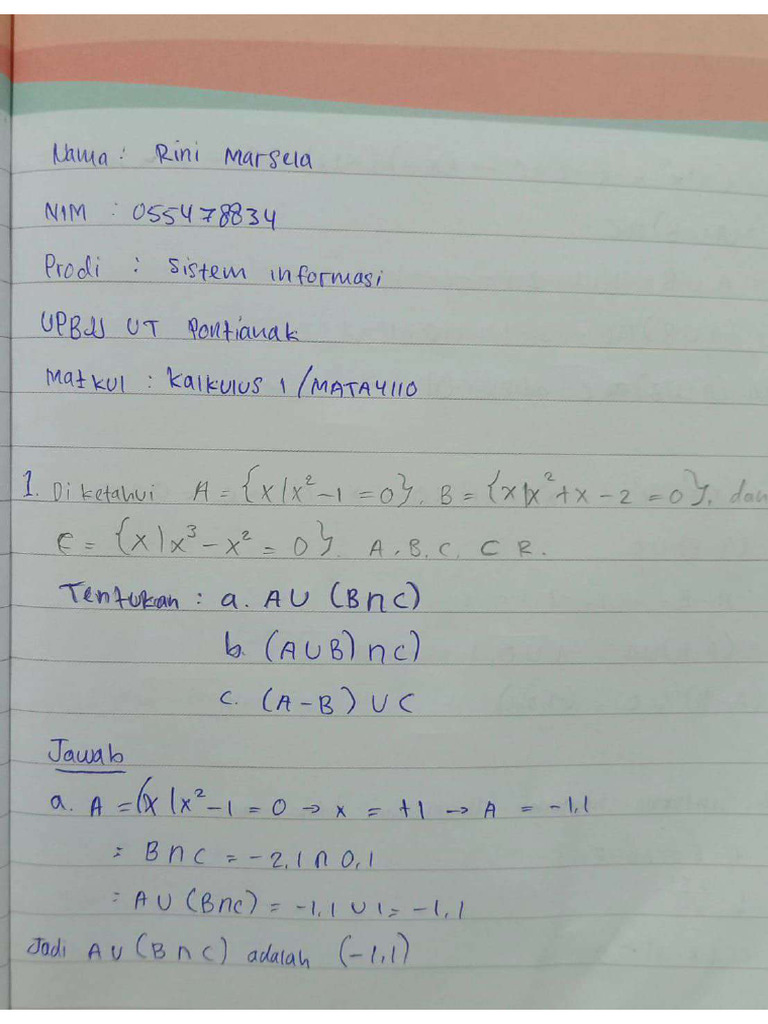 Nama : Rini Marsela
NIM : 055478834
Prodi : Sistem informasi
UPBJJ UT Pontianak
Matkul : Kalkulus 1/MATA4110
1. Diketahui A = {x/x²-1 = 0}, B = {x|x²+x-2 = 0}, dan
C = {x|x³-x² = 0}. A, B, C, ⊂ R.
Tentukan : a. A∪ (B∩C)
b. (A∪B) ∩C)
c. (A-B) ∪ C
Jawab
a. A = (x/x²-1 = 0 → x = +1 → A = -1,1
= B∩C = -2,1 ∩ 0,1
= A∪(B∩C) = -1,1 ∪ 1 = -1,1
Jadi A∪(B∩C) adalah (-1,1)